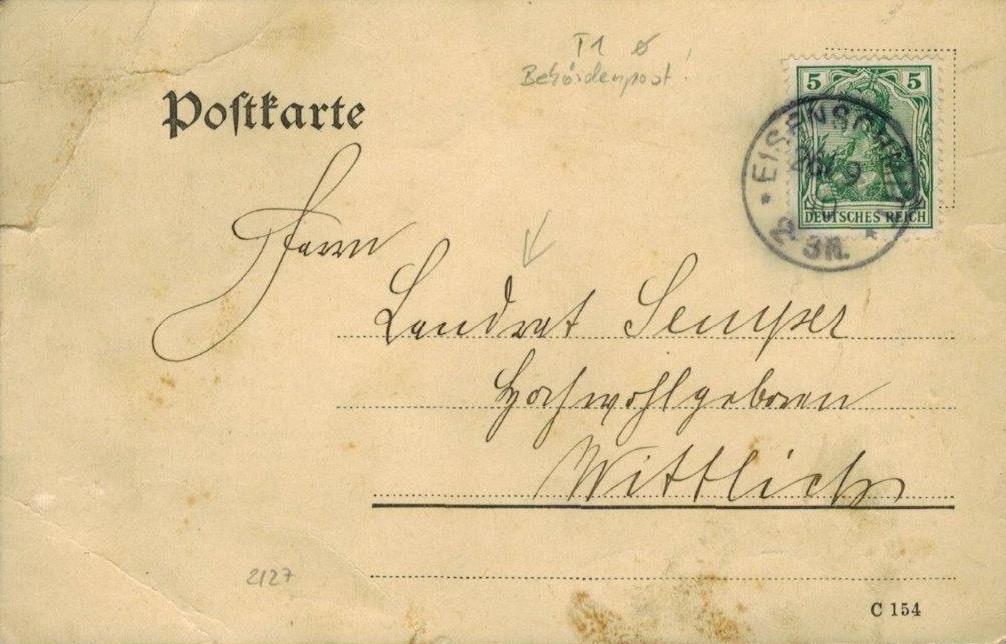 T1
Behördenpost!
Postkarte
5 5
DEUTSCHES REICH
EISENSCHMITT
2-3N.
Herrn
Landrat Semper
Hochwohlgeboren
Wittlich
2127
C 154